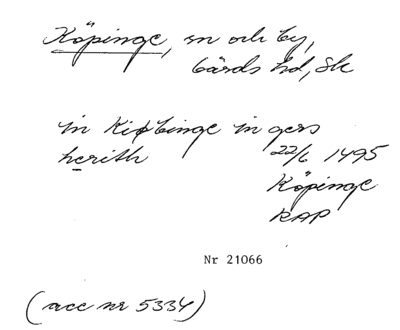 Köpinge, sn och by,
Gärds hd, Sk
in Kiøbinge in gers
herith 22/6 1495
Köpinge
RAP
Nr 21066
(acc nr 5334)